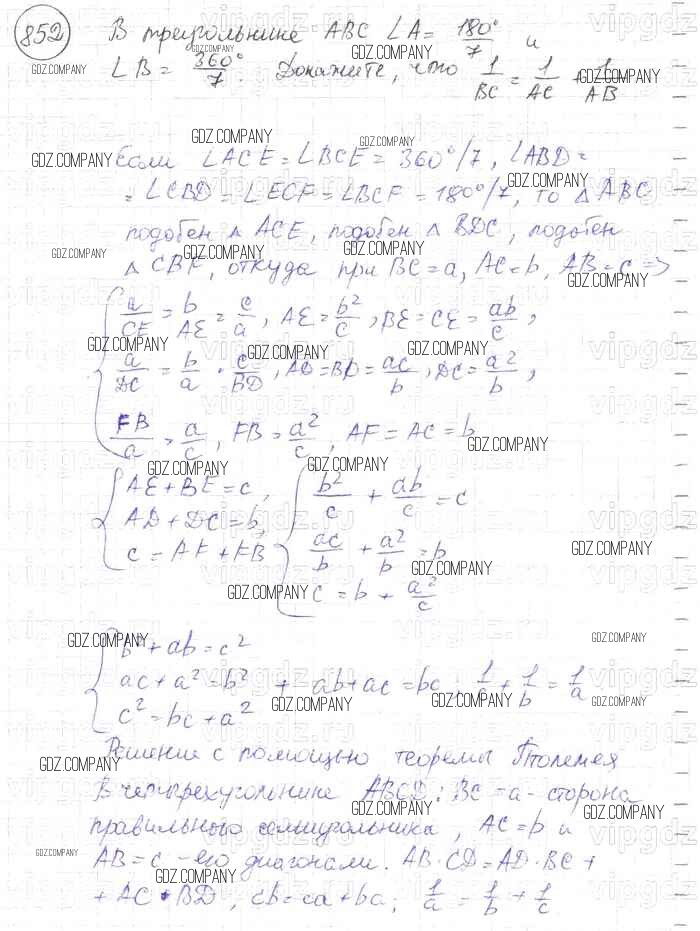 852 В треугольнике ABC ∠A = 180°/7 и
∠B = 360°/7. Докажите, что 1/BC = 1/AC + 1/AB
Если ∠ACE = ∠BCE = 360°/7, ∠ABD =
= ∠CBD = ∠ECF = ∠BCF = 180°/7, то △ABC
подобен △ ACE, подобен △ BDC, подобен
△ CBF, откуда при BC = a, AC = b, AB = c ⇒
a/CE = b/AE = c/a, AE = b²/c, BE = CE = ab/c,
a/DC = b/a · c/BD, AD = BD = ac/b, DC = a²/b,
FB/a = a/c, FB = a²/c, AF = AC = b
AE + BE = c, b²/c + ab/c = c
AD + DC = b, ac/b + a²/b = b
c = AF + FB c = b + a²/c
b² + ab = c²
ac + a² = b² + ab + ac = bc; 1/c + 1/b = 1/a
c² = bc + a²
Решение с помощью теоремы Птолемея
В четырехугольнике ABCD: BC = a - сторона
правильного семиугольника, AC = b и
AB = c - его диагонали. AB · CD = AD · BC +
+ AC · BD, cb = ca + ba; 1/a = 1/b + 1/c
GDZ.COMPANY
vipgdz.ru